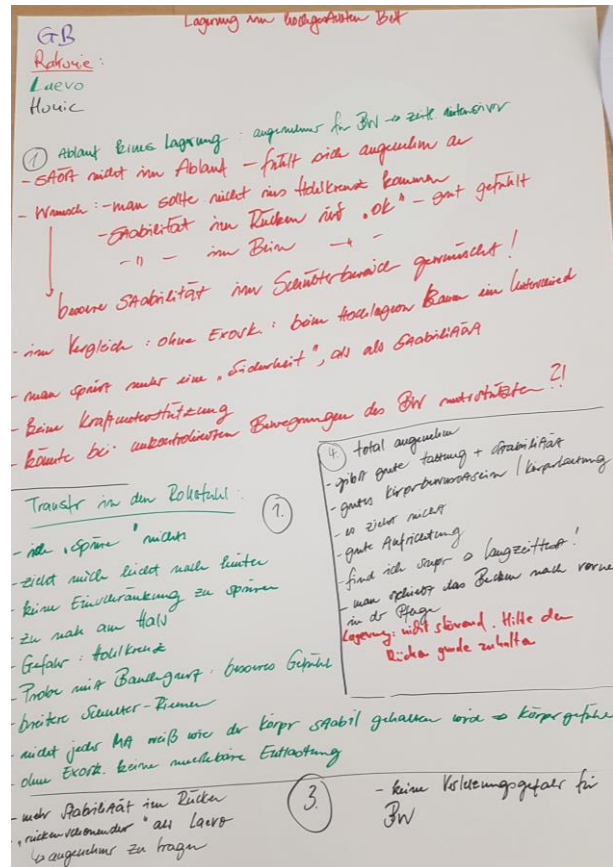 Lagerung im hochgestellten Bett
GB
Rakovie:
Laevo
Hunic
① Ablauf keine Lagerung: angenehmer für BW → zeitl. intensiver
- stört nicht im Ablauf - fühlt sich angenehm an
- Wunsch: - man sollte nicht ins Hohlkreuz kommen
- Stabilität im Rücken ist "ok" - gut gefühlt
- " - im Bein - " -
bessere Stabilität im Schulterbereich gewünscht!
- im Vergleich: ohne Exosk.: beim Hochlagern kaum ein Unterschied
- man spürt mehr eine "Sicherheit", als als Stabilität
- keine Kraftunterstützung
- könnte bei unkontrollierten Bewegungen des BW unterstützen?!
Transfer in den Rollstuhl: ①.
- ich "spüre" nichts
- zieht mich leicht nach hinten
- keine Einschränkung zu spüren
- zu nah am Hals
- Gefahr: Hohlkreuz
- Probe mit Bauchgurt: besseres Gefühl
- breitere Schulter-Riemen
- nicht jeder MA weiß wie der Körper stabil gehalten wird → Körpergefühl
- ohne Exosk. keine merkbare Entlastung
④. total angenehm
- gibt gute Haltung + Stabilität
- gutes Körperbewusstsein / Körperhaltung
- es zieht nicht
- gute Aufrichtung
- find ich super → Langzeittest!
- man schiebt das Becken nach vorne in der Pflege
Lagerung: nicht störend. Hilfe den
Rücken gerade zu halten
③.
- mehr Stabilität im Rücken
- "rückenschonender" als Laevo
↳ angenehmer zu tragen
- keine Verletzungsgefahr für
BW